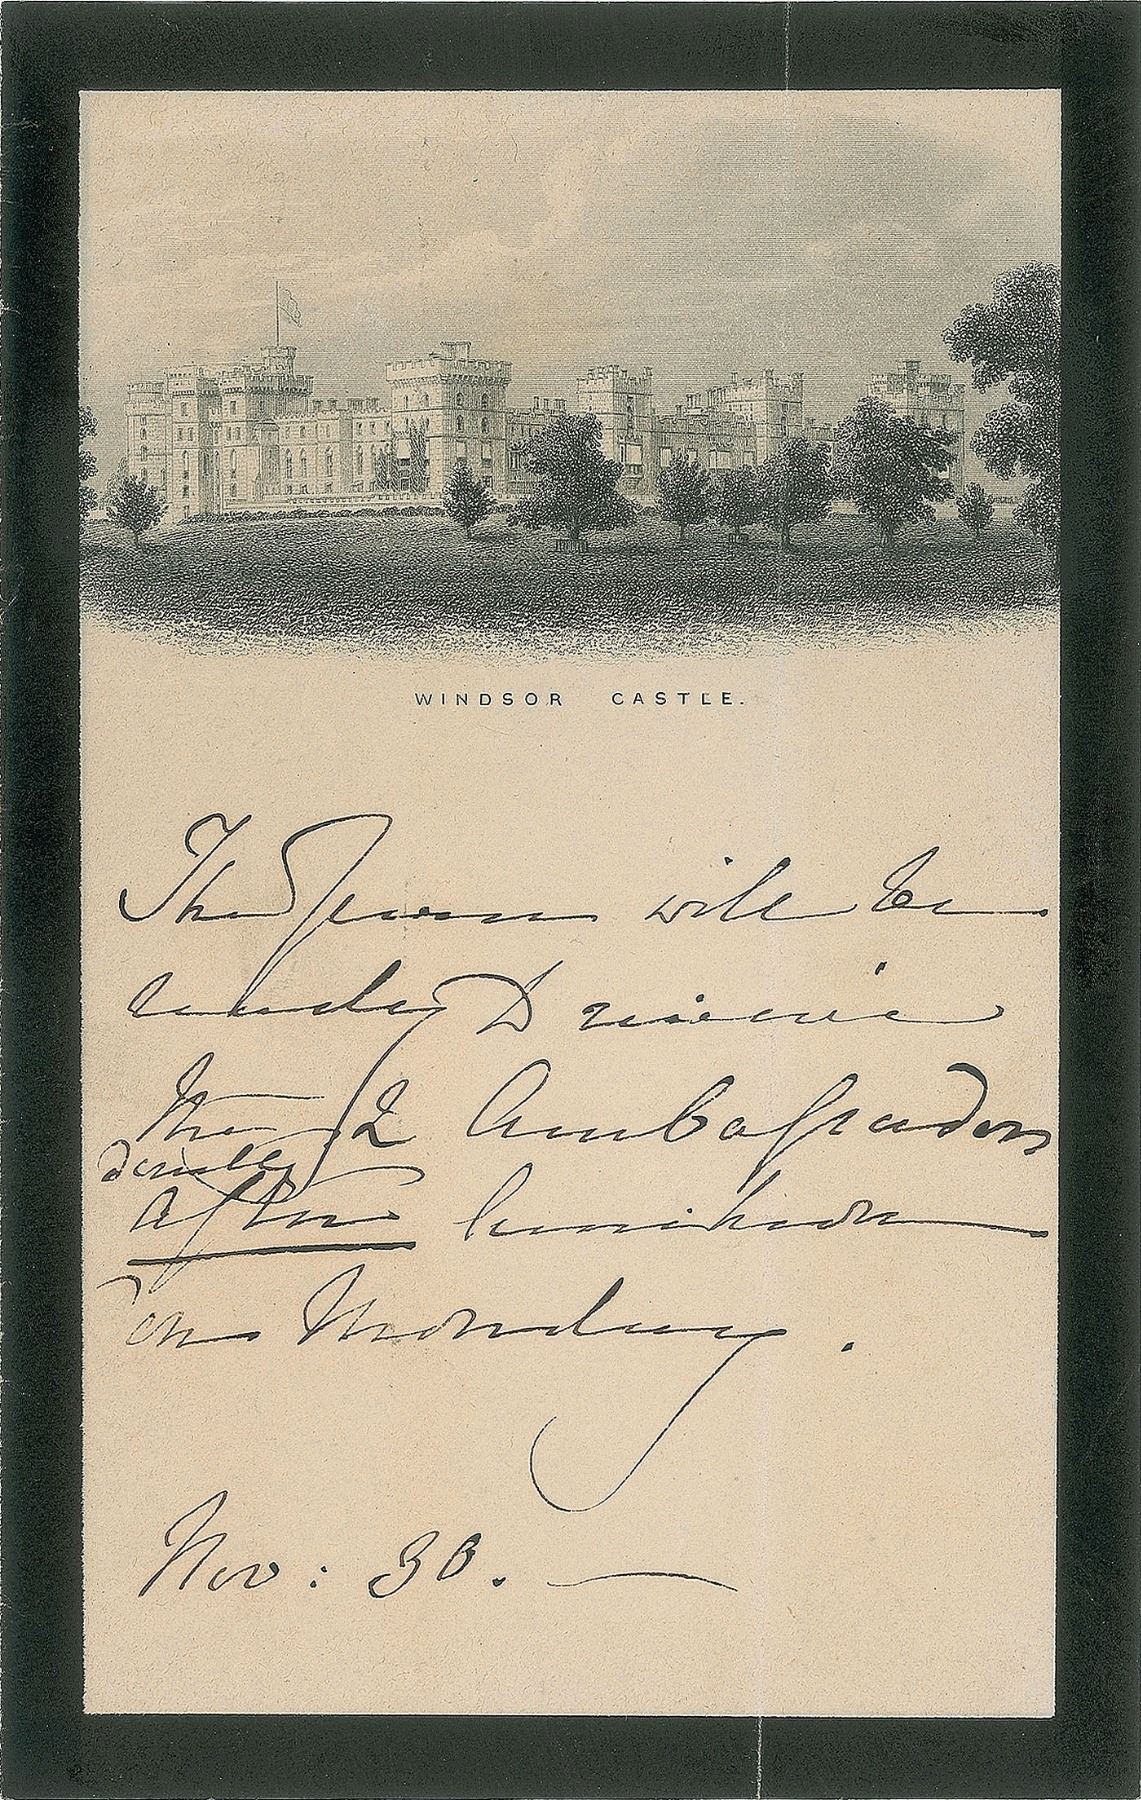 WINDSOR CASTLE.
The Queen will be
ready to receive
the 2 Ambassadors
after luncheon
on Monday.
Nov: 30. —